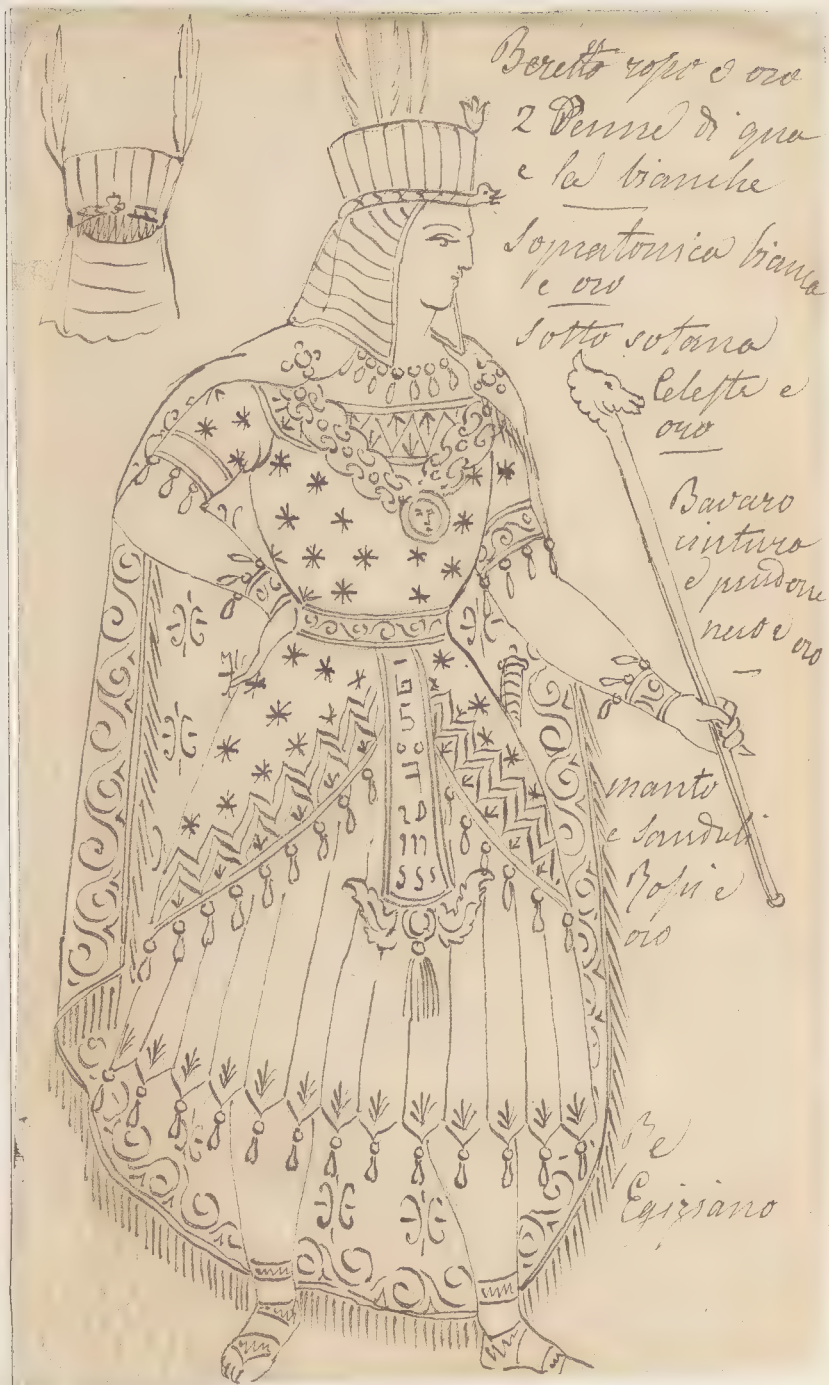 Beretto roſso e oro
2 Penne di qua
e la bianche
Sopratonica bianca
e oro
Sotto sotana
Celeste e
oro
Bavaro
cintura
e pendone
nero e oro
manto
e sandali
Roſsi e
oro
Re
Egiziano